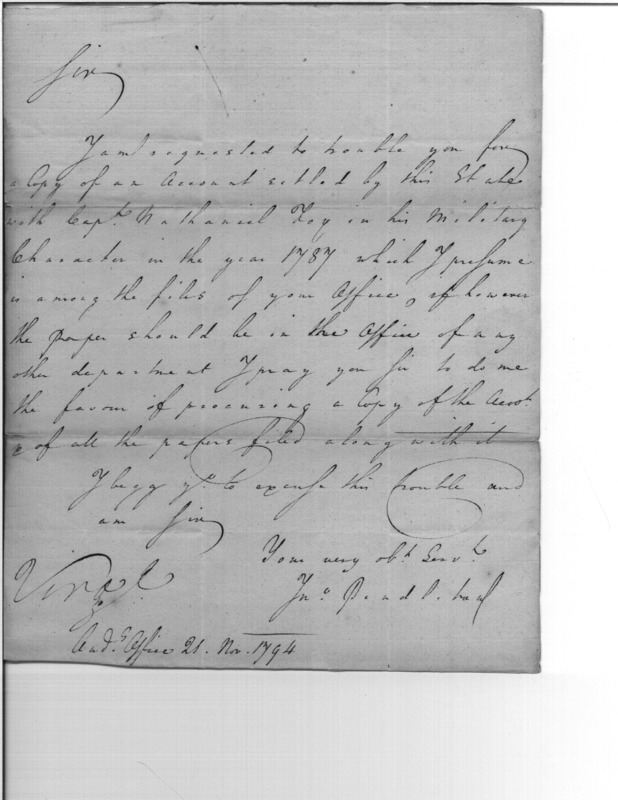 Sir
I am requested to trouble you for
a Copy of an Account setled by this State
with Capt. Nathaniel Fox in his Military
Character in the year 1787 which I presume
is among the files of your Office, if however
the paper should be in the Office of any
other department I pray you Sir to do me
the favour of procuring a Copy of the Accot.
& of all the papers filed along with it
I begg yo. to excuse this trouble and
am Sir
Your very obt. Servt.
Jno.
Virga.
Aud.s Office 21. Nov. 1794